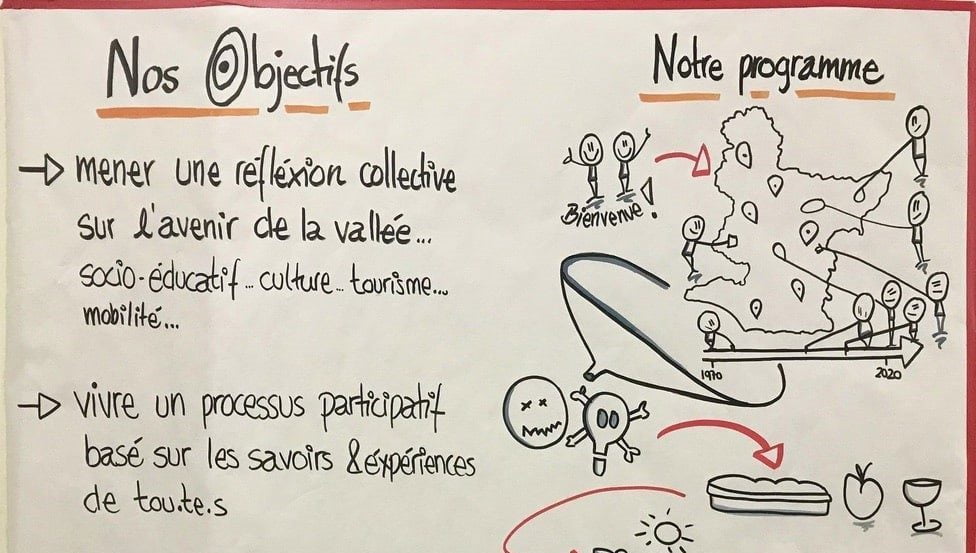 Nos Objectifs
mener une réfléxion collective
sur l'avenir de la vallée...
socio-éducatif... culture... tourisme...
mobilité...
vivre un processus participatif
basé sur les savoirs & éxpériences
de tou.te.s
Notre programme
Bienvenue!
1970 2020